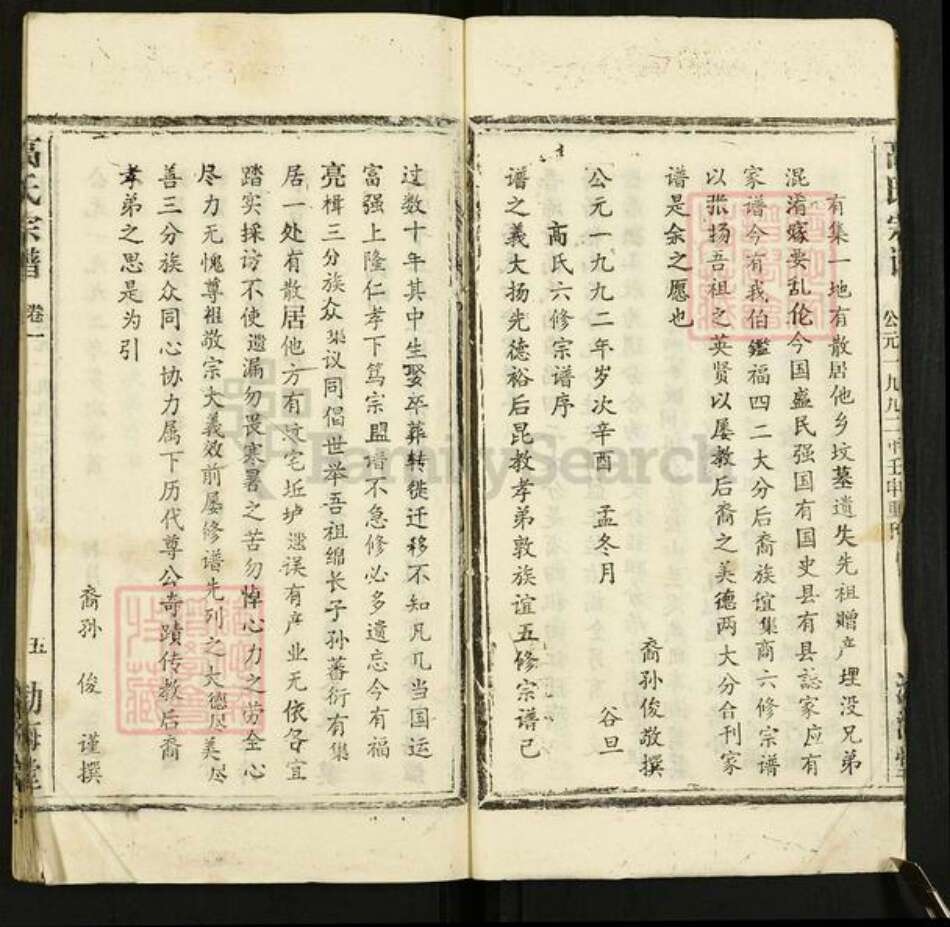 有集一地有散居他乡坟墓遗失先祖赠产埋没兄弟
混淆嫁要乱伦今国盛民强国有国史县有县誌家应有
家谱今有我伯鑑福四二大分后裔族谊集商六修宗谱
以张扬吾祖之英贤以屡教后裔之美德两大分合刊家
谱是余之愿也
裔孙俊敬撰
公元一九九二年岁次辛酉 孟冬月 谷旦
高氏六修宗谱序
谱之義大扬先德裕后昆教孝弟敦族谊五修宗谱已
过数十年其中生娶卒葬转徙迁移不知凡几当国运
富强上隆仁孝下篤宗盟谱不急修必多遗忘今有福
亮楫三分族众集议同倡世举吾祖绵长子孙蕃衍有集
居一处有散居他方有坟宅坵垆遗误有产业无依各宜
踏实採访不使遗漏勿畏寒暑之苦勿惮心力之劳全心
尽力无愧尊祖敬宗大義效前屡修谱先列之大德尽美尽
善三分族众同心协力属下历代尊公奇蹟传教后裔
孝弟之思是为引
裔孙 俊 谨撰
高氏宗谱 卷一 五 勃海堂
公元一九九二年壬申重修
FamilySearch